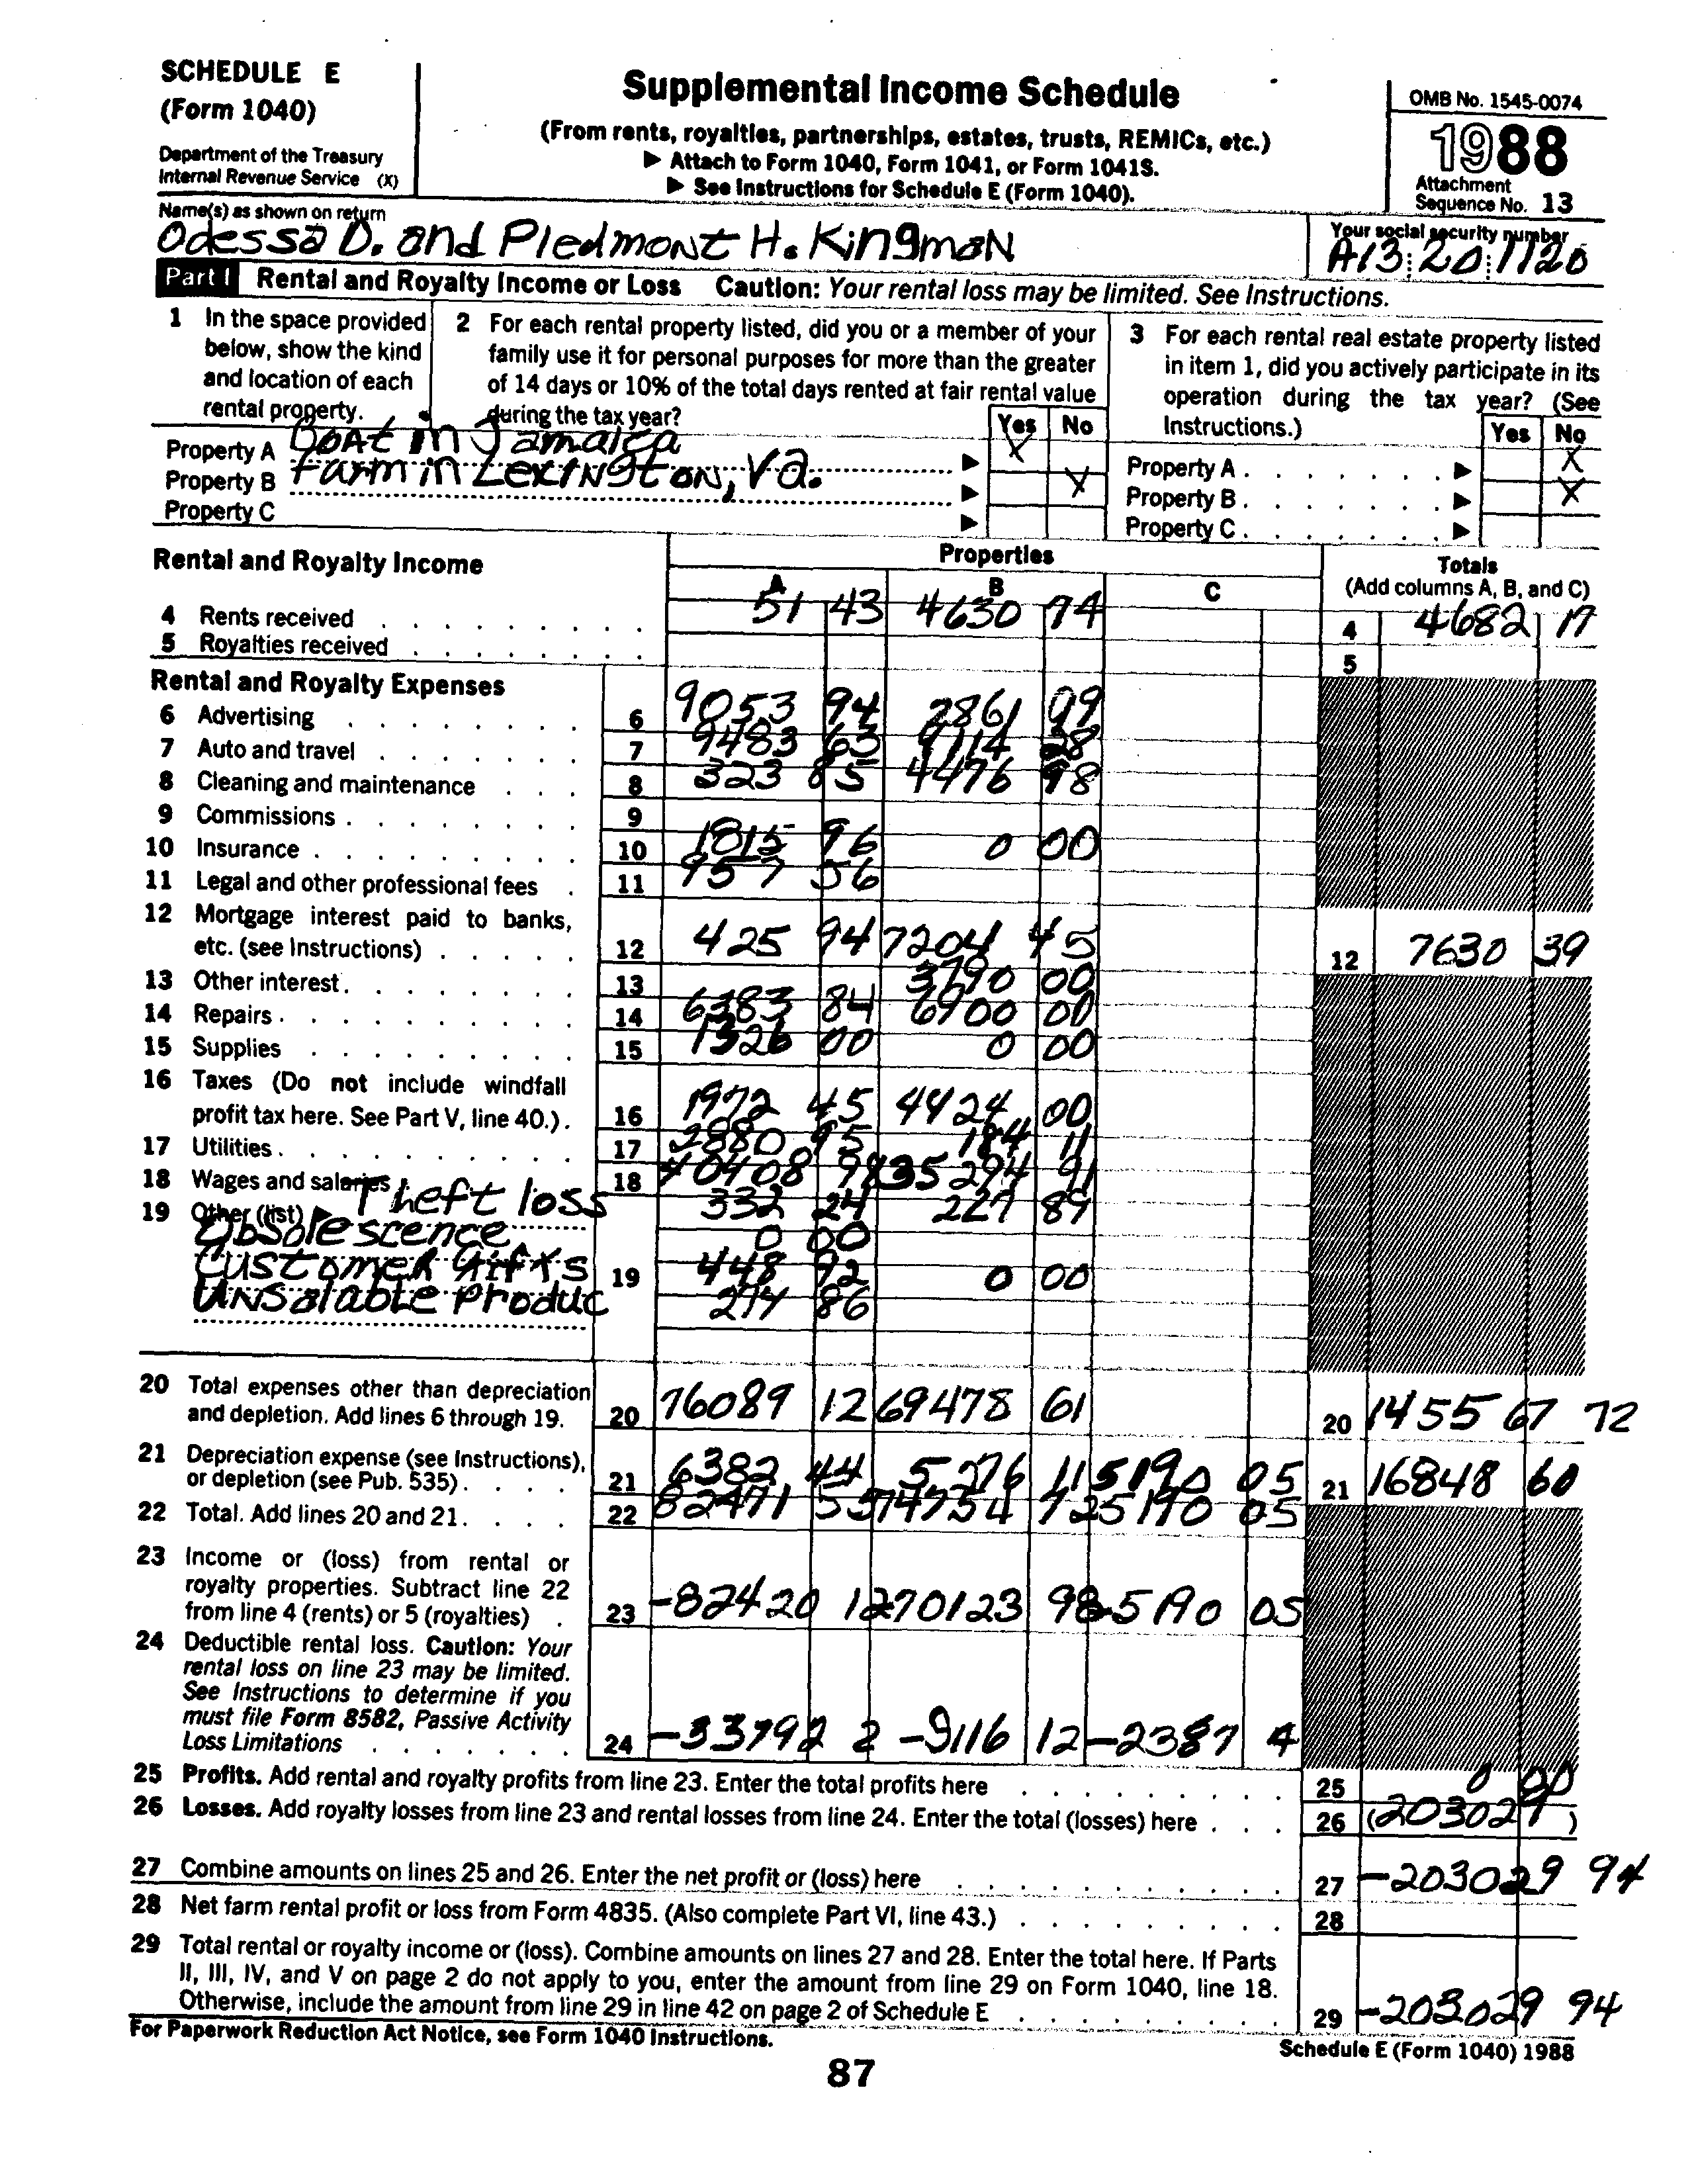 SCHEDULE E
(Form 1040)
Department of the Treasury
Internal Revenue Service (X)
Supplemental Income Schedule
(From rents, royalties, partnerships, estates, trusts, REMICs, etc.)
▶ Attach to Form 1040, Form 1041, or Form 1041S.
▶ See Instructions for Schedule E (Form 1040).
OMB No. 1545-0074
1988
Attachment
Sequence No. 13
Name(s) as shown on return
Odessa D. and Piedmont H. Kingman
Your social security number
A13:20:1120
Part I Rental and Royalty Income or Loss Caution: Your rental loss may be limited. See Instructions.
1 In the space provided
below, show the kind
and location of each
rental property.
2 For each rental property listed, did you or a member of your
family use it for personal purposes for more than the greater
of 14 days or 10% of the total days rented at fair rental value
during the tax year?
Yes No
3 For each rental real estate property listed
in item 1, did you actively participate in its
operation during the tax year? (See
Instructions.)
Yes No
Property A Boat in Jamaica ▶ X
Property B Farm in Lexington, Va. ▶ X
Property C ▶
Property A . . . . . . . ▶ X
Property B . . . . . . . ▶ X
Property C . . . . . . . ▶
Rental and Royalty Income
Properties
A B C
Totals
(Add columns A, B, and C)
4 Rents received 51 43 4630 74 4 4682 17
5 Royalties received 5
Rental and Royalty Expenses
6 Advertising 6 9053 94 2861 99
7 Auto and travel 7 9483 63 9114 28
8 Cleaning and maintenance 8 323 85 4476 98
9 Commissions 9
10 Insurance 10 1815 96 0 00
11 Legal and other professional fees 11 957 56
12 Mortgage interest paid to banks,
etc. (see Instructions) 12 425 94 7204 45 12 7630 39
13 Other interest 13 3790 00
14 Repairs 14 6383 84 6900 00
15 Supplies 15 1326 00 0 00
16 Taxes (Do not include windfall
profit tax here. See Part V, line 40.) 16 1972 45 4424 00
17 Utilities 17 2880 95 184 11
18 Wages and salaries 18 40408 98 35294 91
19 Other (list) ▶ Theft loss 332 24 227 89
Obsolescence 0 00
Customer Gifts 19 448 92 0 00
Unsalable Produc 274 86
20 Total expenses other than depreciation
and depletion. Add lines 6 through 19. 20 76089 12 69478 61 20 145567 72
21 Depreciation expense (see Instructions),
or depletion (see Pub. 535) 21 6382 44 5276 11 5190 05 21 16848 60
22 Total. Add lines 20 and 21. 22 82471 55 74754 72 5190 05
23 Income or (loss) from rental or
royalty properties. Subtract line 22
from line 4 (rents) or 5 (royalties) 23 -82420 12 70123 98 -5190 05
24 Deductible rental loss. Caution: Your
rental loss on line 23 may be limited.
See Instructions to determine if you
must file Form 8582, Passive Activity
Loss Limitations 24 -33792 2 -9116 12 -2387 4
25 Profits. Add rental and royalty profits from line 23. Enter the total profits here 25 0 00
26 Losses. Add royalty losses from line 23 and rental losses from line 24. Enter the total (losses) here 26 (203029 )
27 Combine amounts on lines 25 and 26. Enter the net profit or (loss) here 27 -203029 94
28 Net farm rental profit or loss from Form 4835. (Also complete Part VI, line 43.) 28
29 Total rental or royalty income or (loss). Combine amounts on lines 27 and 28. Enter the total here. If Parts
II, III, IV, and V on page 2 do not apply to you, enter the amount from line 29 on Form 1040, line 18.
Otherwise, include the amount from line 29 in line 42 on page 2 of Schedule E 29 -203029 94
For Paperwork Reduction Act Notice, see Form 1040 Instructions.
Schedule E (Form 1040) 1988
87